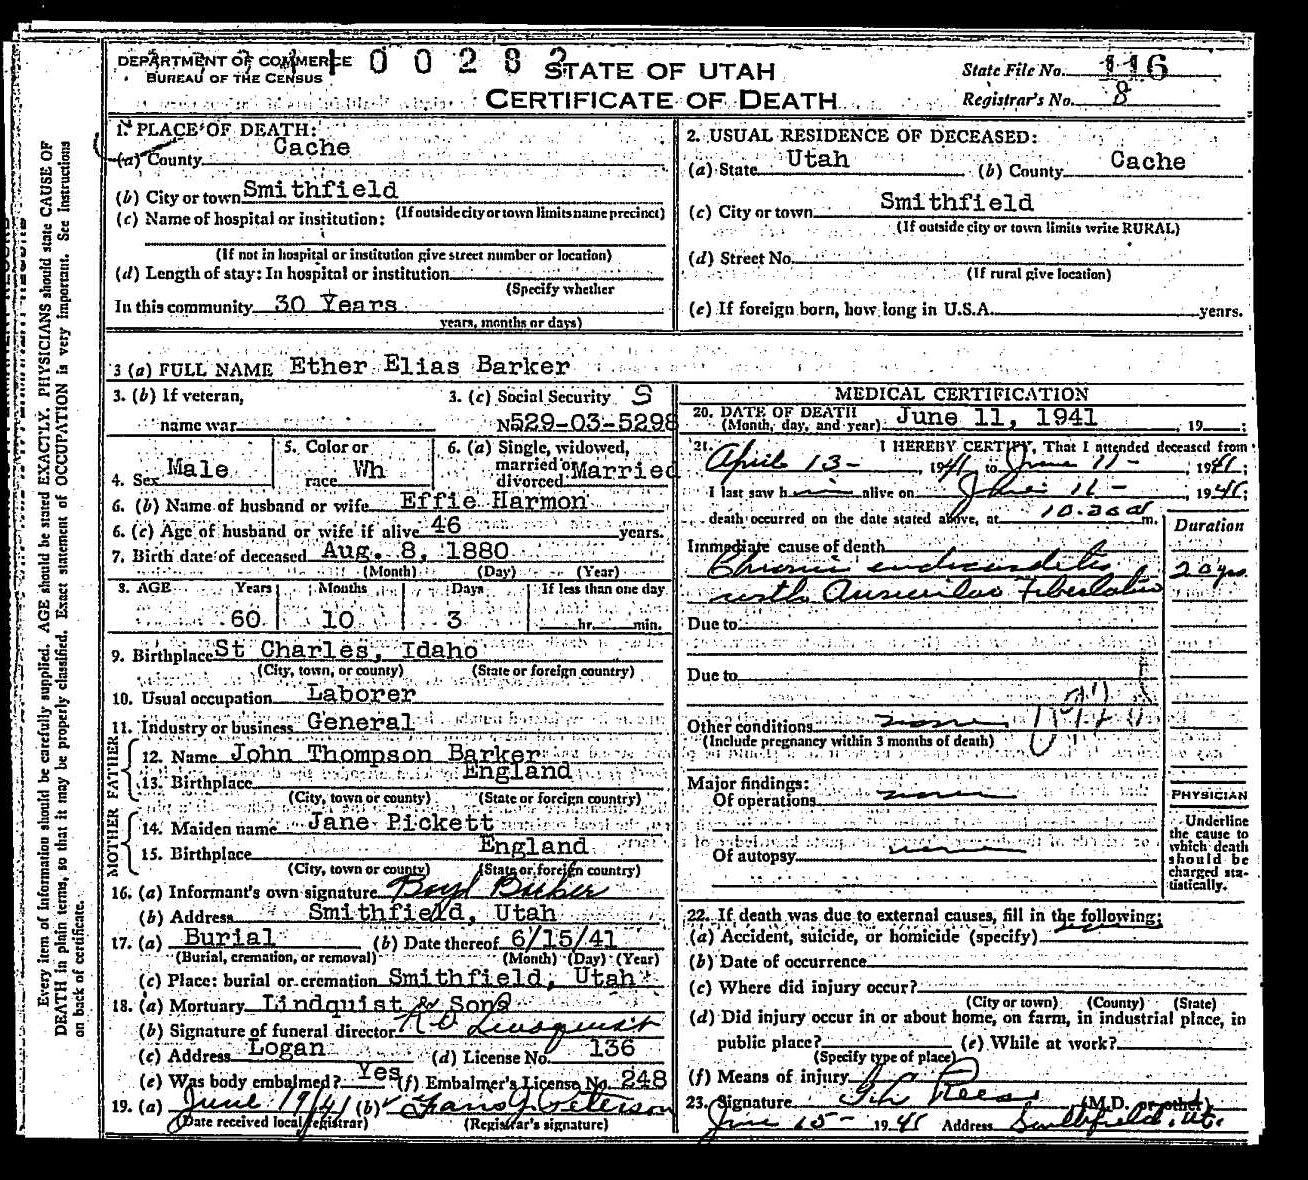 DEPARTMENT OF COMMERCE
BUREAU OF THE CENSUS
STATE OF UTAH
CERTIFICATE OF DEATH
State File No. 116
Registrar's No. 8
1. PLACE OF DEATH:
(a) County Cache
(b) City or town Smithfield
(If outside city or town limits name precinct)
(c) Name of hospital or institution:
(If not in hospital or institution give street number or location)
(d) Length of stay: In hospital or institution
(Specify whether
In this community 30 Years
years, months or days)
2. USUAL RESIDENCE OF DECEASED:
(a) State Utah (b) County Cache
(c) City or town Smithfield
(If outside city or town limits write RURAL)
(d) Street No.
(If rural give location)
(e) If foreign born, how long in U.S.A. years.
3 (a) FULL NAME Ether Elias Barker
3. (b) If veteran,
name war
3. (c) Social Security S
No 529-03-5298
4. Sex Male
5. Color or
race Wh
6. (a) Single, widowed,
married or
divorced Married
6. (b) Name of husband or wife Effie Harmon
6. (c) Age of husband or wife if alive 46 years.
7. Birth date of deceased Aug. 8, 1880
(Month) (Day) (Year)
8. AGE Years Months Days If less than one day
60 10 3 hr. min.
9. Birthplace St Charles, Idaho
(City, town, or county) (State or foreign country)
10. Usual occupation Laborer
11. Industry or business General
FATHER
12. Name John Thompson Barker
13. Birthplace England
(City, town or county) (State or foreign country)
MOTHER
14. Maiden name Jane Pickett
15. Birthplace England
(City, town or county) (State or foreign country)
16. (a) Informant's own signature Boyd Barker
(b) Address Smithfield, Utah
17. (a) Burial (b) Date thereof 6/15/41
(Burial, cremation, or removal) (Month) (Day) (Year)
(c) Place: burial or cremation Smithfield, Utah
18. (a) Mortuary Lindquist & Sons
(b) Signature of funeral director Lindquist
(c) Address Logan (d) License No. 136
(e) Was body embalmed? Yes (f) Embalmer's License No. 248
19. (a) June 19/41 (b) Peterson
(Date received local registrar) (Registrar's signature)
MEDICAL CERTIFICATION
20. DATE OF DEATH
(Month, day, and year) June 11, 1941, 19
21. I HEREBY CERTIFY, That I attended deceased from
April 13-, 1941 to June 11-, 1941;
I last saw him alive on June 11-, 1941;
death occurred on the date stated above, at m.
Duration
Immediate cause of death
Chronic endocarditis
20 yrs
with Auricular
Due to
Due to
Other conditions none
(Include pregnancy within 3 months of death)
Major findings:
Of operations none
Of autopsy none
PHYSICIAN
Underline
the cause to
which death
should be
charged sta-
tistically.
22. If death was due to external causes, fill in the following:
(a) Accident, suicide, or homicide (specify)
(b) Date of occurrence
(c) Where did injury occur?
(City or town) (County) (State)
(d) Did injury occur in or about home, on farm, in industrial place, in
public place? (e) While at work?
(Specify type of place)
(f) Means of injury
23. Signature Rees (M.D. or other)
June 15- 1941 Address Smithfield, Ut.
Every item of information should be carefully supplied. AGE should be stated EXACTLY. PHYSICIANS should state CAUSE OF
DEATH in plain terms, so that it may be properly classified. Exact statement of OCCUPATION is very important. See Instructions
on back of certificate.